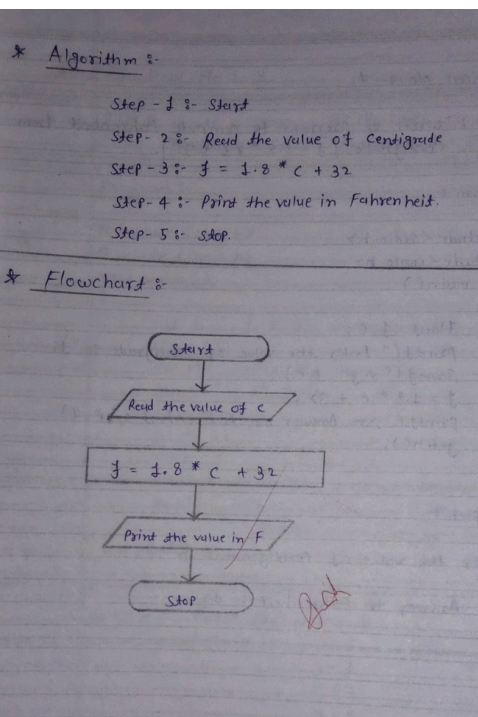 * Algorithm :-
Step - 1 :- Start
Step - 2 :- Read the value of Centigrade
Step - 3 :- f = 1.8 * C + 32
Step - 4 :- Print the value in Fahrenheit.
Step - 5 :- Stop.
* Flowchart :-
Start
Read the value of C
f = 1.8 * C + 32
Print the value in F
Stop